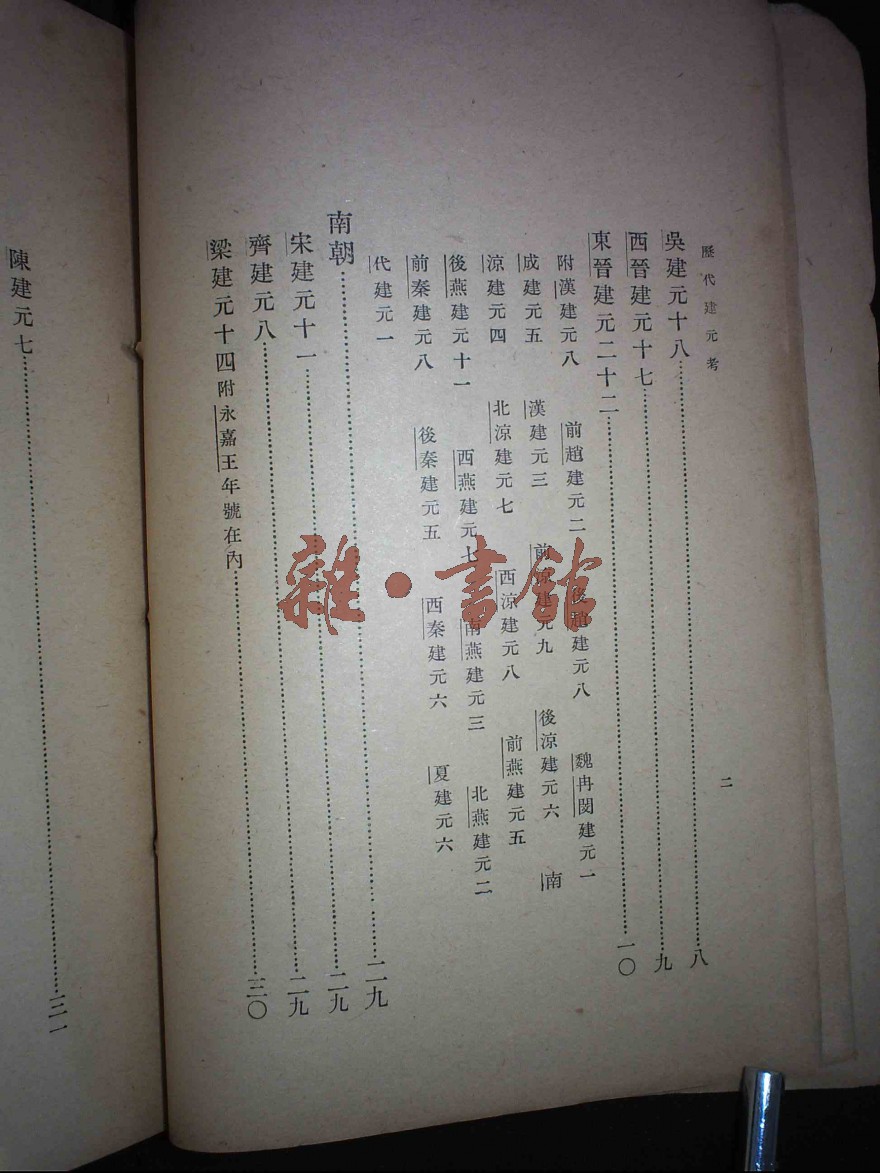 歷代建元考 二
吳建元十八……八
西晉建元十七……九
東晉建元二十二……一〇
附漢建元八 前趙建元二 後趙建元八 魏冉閔建元一
成建元五 漢建元三 前涼建元九 後涼建元六 南
涼建元四 北涼建元七 西涼建元八 前燕建元五
後燕建元十一 西燕建元七 南燕建元三 北燕建元二
前秦建元八 後秦建元五 西秦建元六 夏建元六
代建元一
南朝……二九
宋建元十一……二九
齊建元八……二九
梁建元十四附永嘉王年號在內……三〇
陳建元七……三一
雜·書館